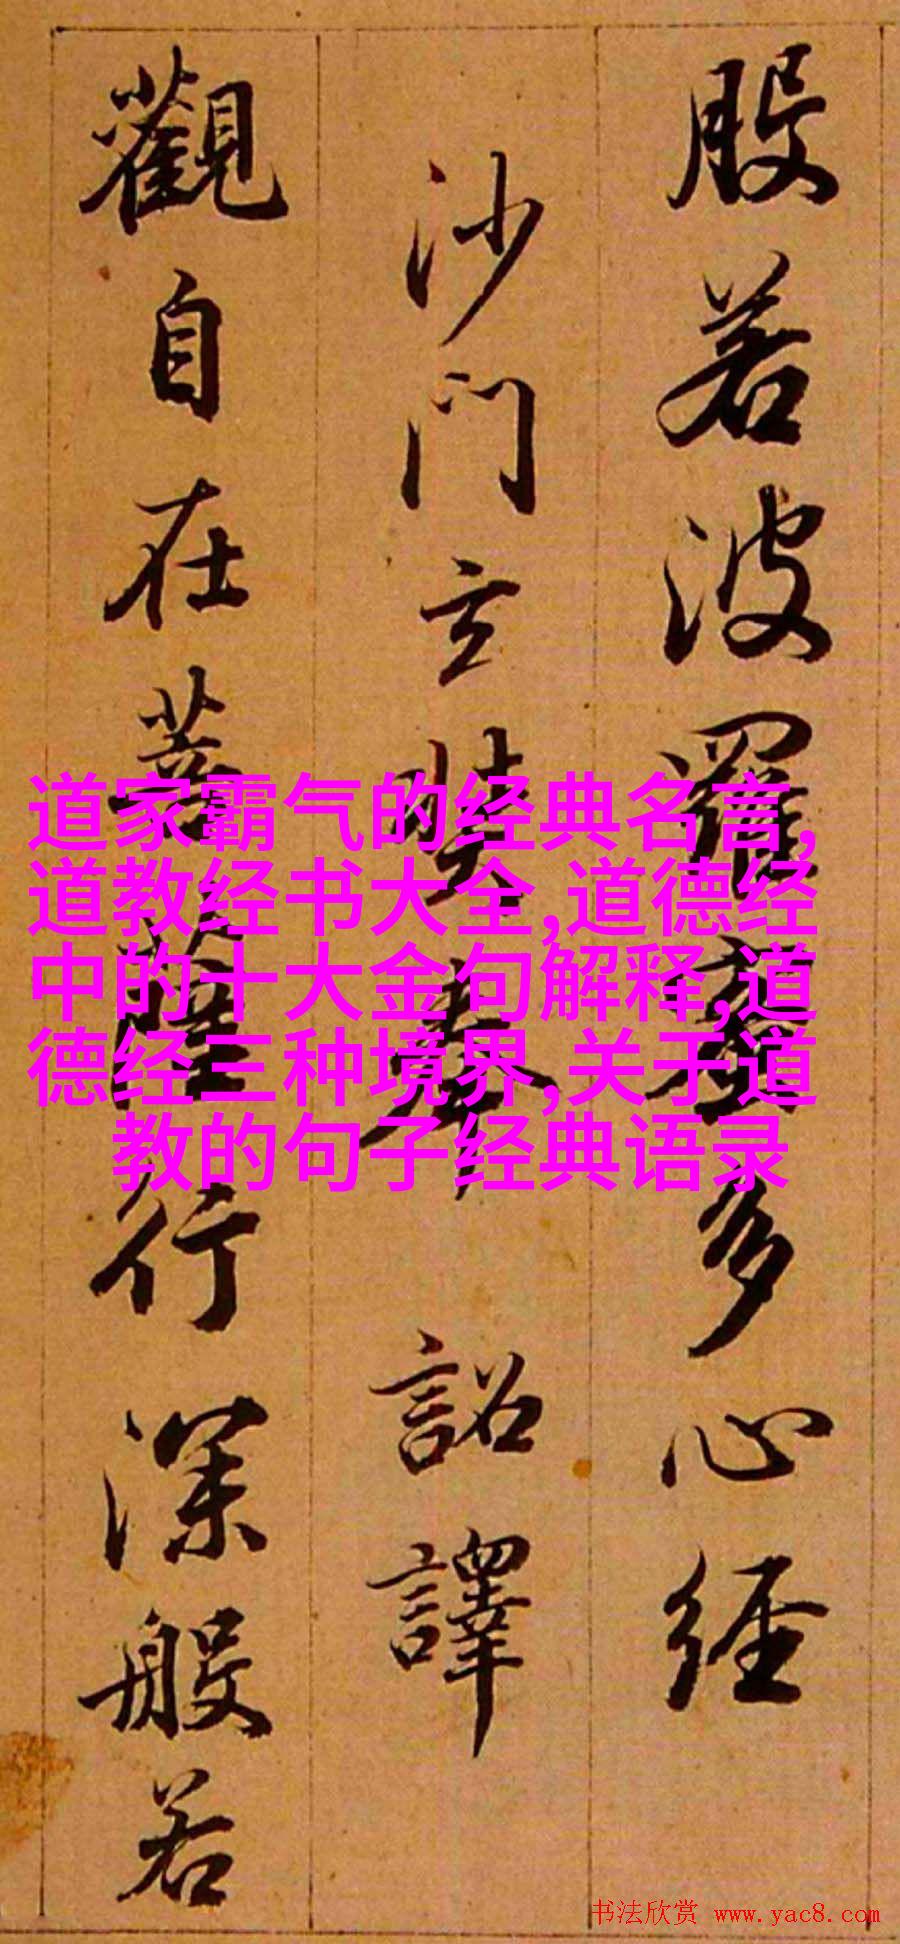 般若波羅蜜多心經
沙門玄奘奉 詔譯
觀自在菩薩行深般若
道家霸气的经典名言,
道教经书大全,道德经
中的十大金句解释,道
德经三种境界,关于道
教的句子经典语录
书法欣赏 www.yac8.com